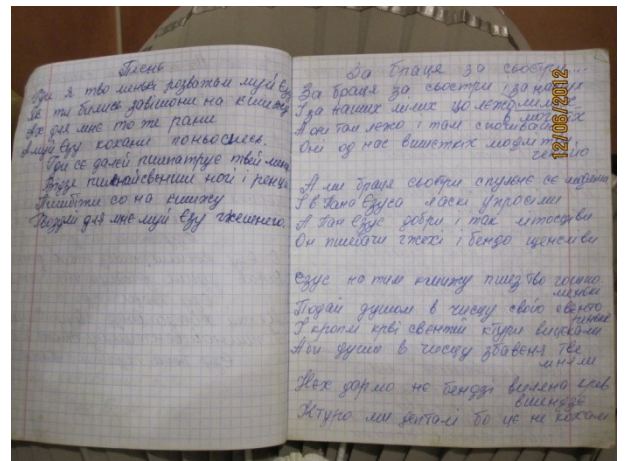 Песнь
Гди я тво меньки розважам муй Єзу
Як ти бились завішони на кшижу
Ах для мнє то те рани
А муй Єзу кохани поньослесь.
Гди сє далей пшипатрує твей менце
Відзе пшенайсвентши ногі і ренце
Пшибіти со на кшижу
Гвоздмі для мнє муй Єзу гжешнего.
За браця за сьостри...
За браця за сьостри і за наших
І за наших мілих цо лежо
в могілах
А оні там лежо і там спочивайо
Оні од нас вшистких модлітв
чекайо
А ми браця сьостри спульнє сє модлими
І в Пана Єзуса ласкі упросіми
А Пан Єзус добри і так мітосціви
Он пшебачи гжехі і бендо щенсліви
Єзус на тим кшижу пшез тво гошко
меньке
Подай душом в чисцу свойо свенто
реньке
І кроплі крві свентши ктури вицекали
Аби души в чисцу збавєня
мняли
Нєх дармо нє бендзі вилена крев
вшендзе
Ктуро ми депталі бо це нє кохалі
12/06/2012